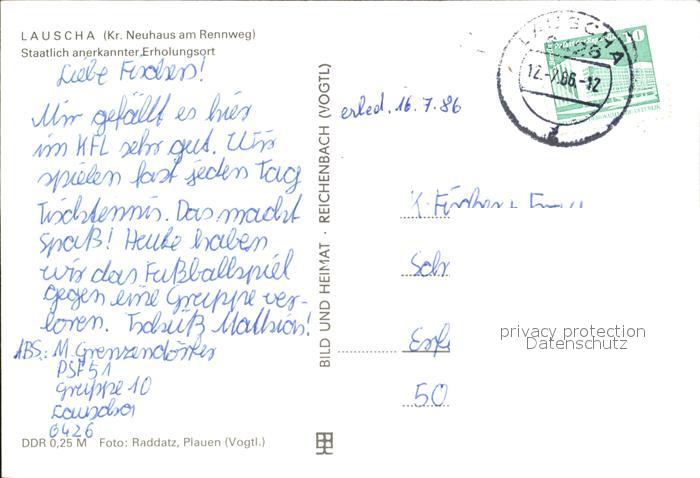 LAUSCHA (Kr. Neuhaus am Rennweg)
Staatlich anerkannter Erholungsort
Liebe Fischers!
Mir gefällt es hier
im KFL sehr gut. Wir
spielen fast jeden Tag
Tischtennis. Das macht
Spaß! Heute haben
wir das Fußballspiel
gegen eine Gruppe ver-
loren. Tschüß Mathias!
ABS.: M. Grenzendörfer
PSF 51
Gruppe 10
Lauscha
6426
DDR 0,25 M Foto: Raddatz, Plauen (Vogtl.)
BILD UND HEIMAT · REICHENBACH (VOGTL)
erled. 16.7.86
LAUSCHA
12.-7.86.-12
10
Sch
Erf
50
privacy protection
Datenschutz